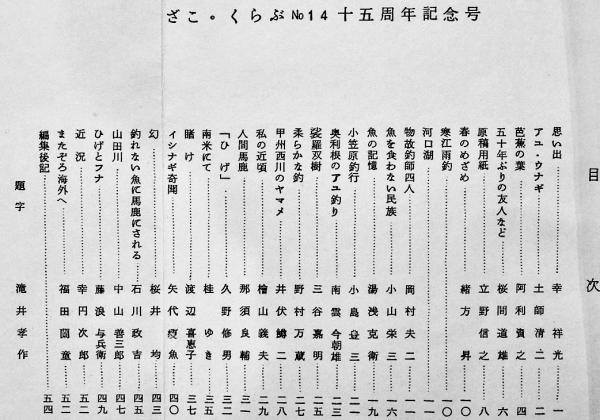 ざこ・くらぶ №14 十五周年記念号
目次
思い出 幸祥光 一
アユ・ウナギ 土師清二 二
芭蕉の葉 阿利資之 四
五十年ぶりの友人など 桜間道雄 六
原稿用紙 立野信之 八
春のめざめ 緒方昇 一〇
寒江雨釣 一〇
河口湖 一一
物故釣師四人 岡村夫二 一一
魚を食わない民族 小山栄三 一六
魚の記憶 湯浅克衛 一九
小笠原釣行 小島 三 二一
奥利根のアユ釣り 南雲今朝雄 二三
娑羅双樹 三谷嘉明 二五
柔らかな釣 野村万蔵 二七
甲州西川のヤマメ 井伏鱒二 二八
私の近頃 檜山義夫 二九
人間馬鹿 那須良輔 三一
「ひげ」 久野修男 三二
南米にて 桂ゆき 三五
賭け 渡辺喜恵子 三七
イシナギ奇聞 矢代 魚 四〇
幻 桜井均 四三
釣れない魚に馬鹿にされる 石川政吉 四五
山田川 中山善三郎 四七
ひげとフナ 藤浪与兵衛 四九
近況 幸円次郎 五二
またぞろ海外へ 福田蘭童 五二
編集後記 五四
題字 滝井孝作